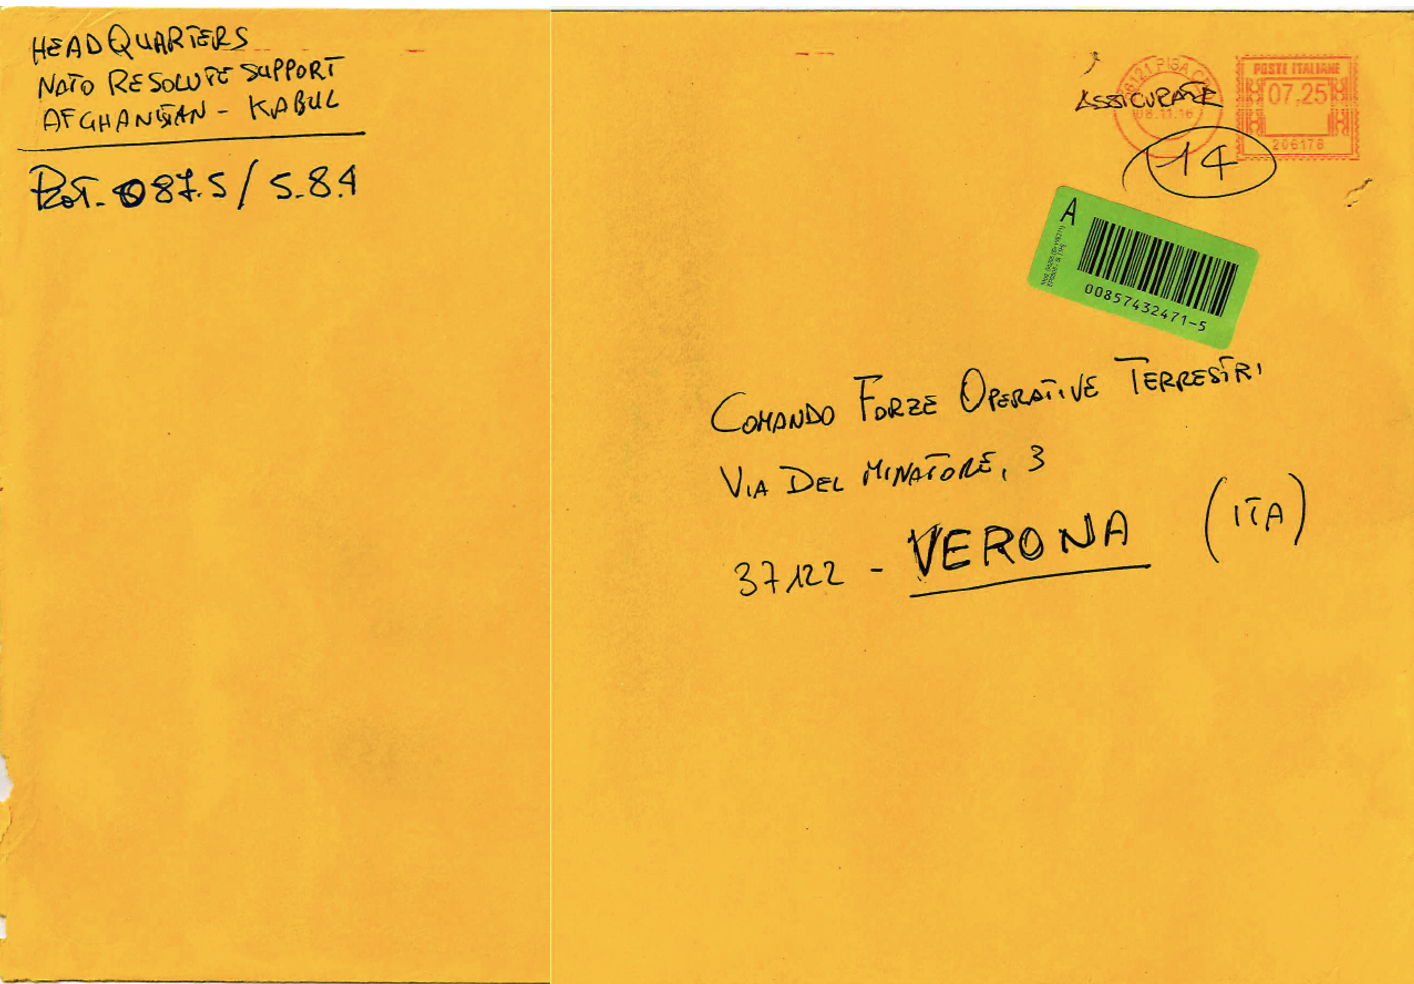 HEADQUARTERS
NATO RESOLUTE SUPPORT
AFGHANISTAN - KABUL
Prot. 087.5 / 5.8.1
ASSICURATE
PISA C
08.11.16
POSTE ITALIANE
07,25
206178
14
A
00857432471-5
COMANDO FORZE OPERATIVE TERRESTRI
VIA DEL MINATORE, 3
37122 - VERONA (ITA)